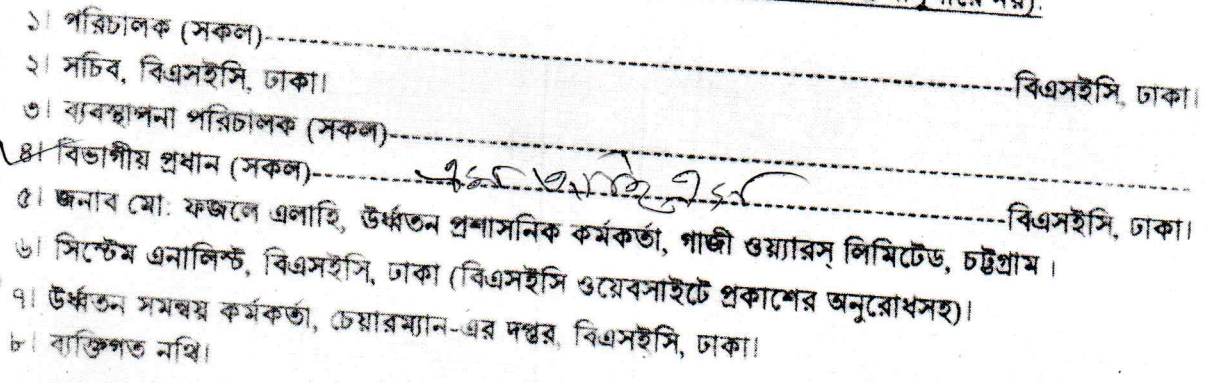 ১। পরিচালক (সকল)-----------------------------------বিএসইসি, ঢাকা।
২। সচিব, বিএসইসি, ঢাকা।
৩। ব্যবস্থাপনা পরিচালক (সকল)-----------------------------------
৪। বিভাগীয় প্রধান (সকল)-----------------------------------বিএসইসি, ঢাকা।
৫। জনাব মো: ফজলে এলাহি, উর্ধ্বতন প্রশাসনিক কর্মকর্তা, গাজী ওয়্যারস্ লিমিটেড, চট্টগ্রাম।
৬। সিস্টেম এনালিস্ট, বিএসইসি, ঢাকা (বিএসইসি ওয়েবসাইটে প্রকাশের অনুরোধসহ)।
৭। উর্ধ্বতন সমন্বয় কর্মকর্তা, চেয়ারম্যান-এর দপ্তর, বিএসইসি, ঢাকা।
৮। ব্যক্তিগত নথি।